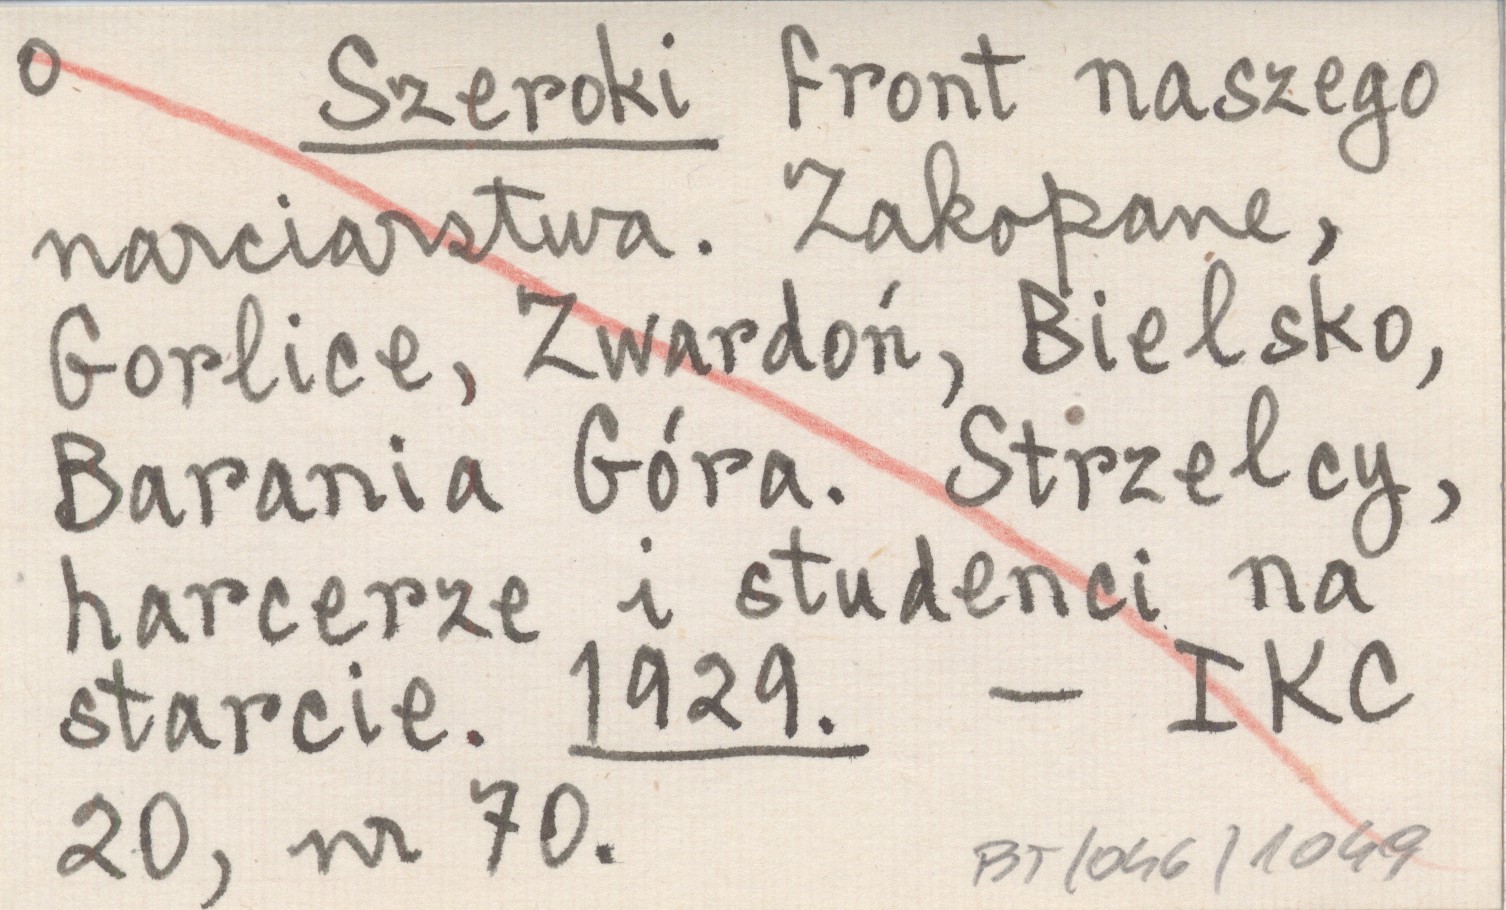 o Szeroki front naszego
narciarstwa. Zakopane,
Gorlice, Zwardoń, Bielsko,
Barania Góra. Strzelcy,
harcerze i studenci na
starcie. 1929. — IKC
20, nr 70.
BT/046/1049